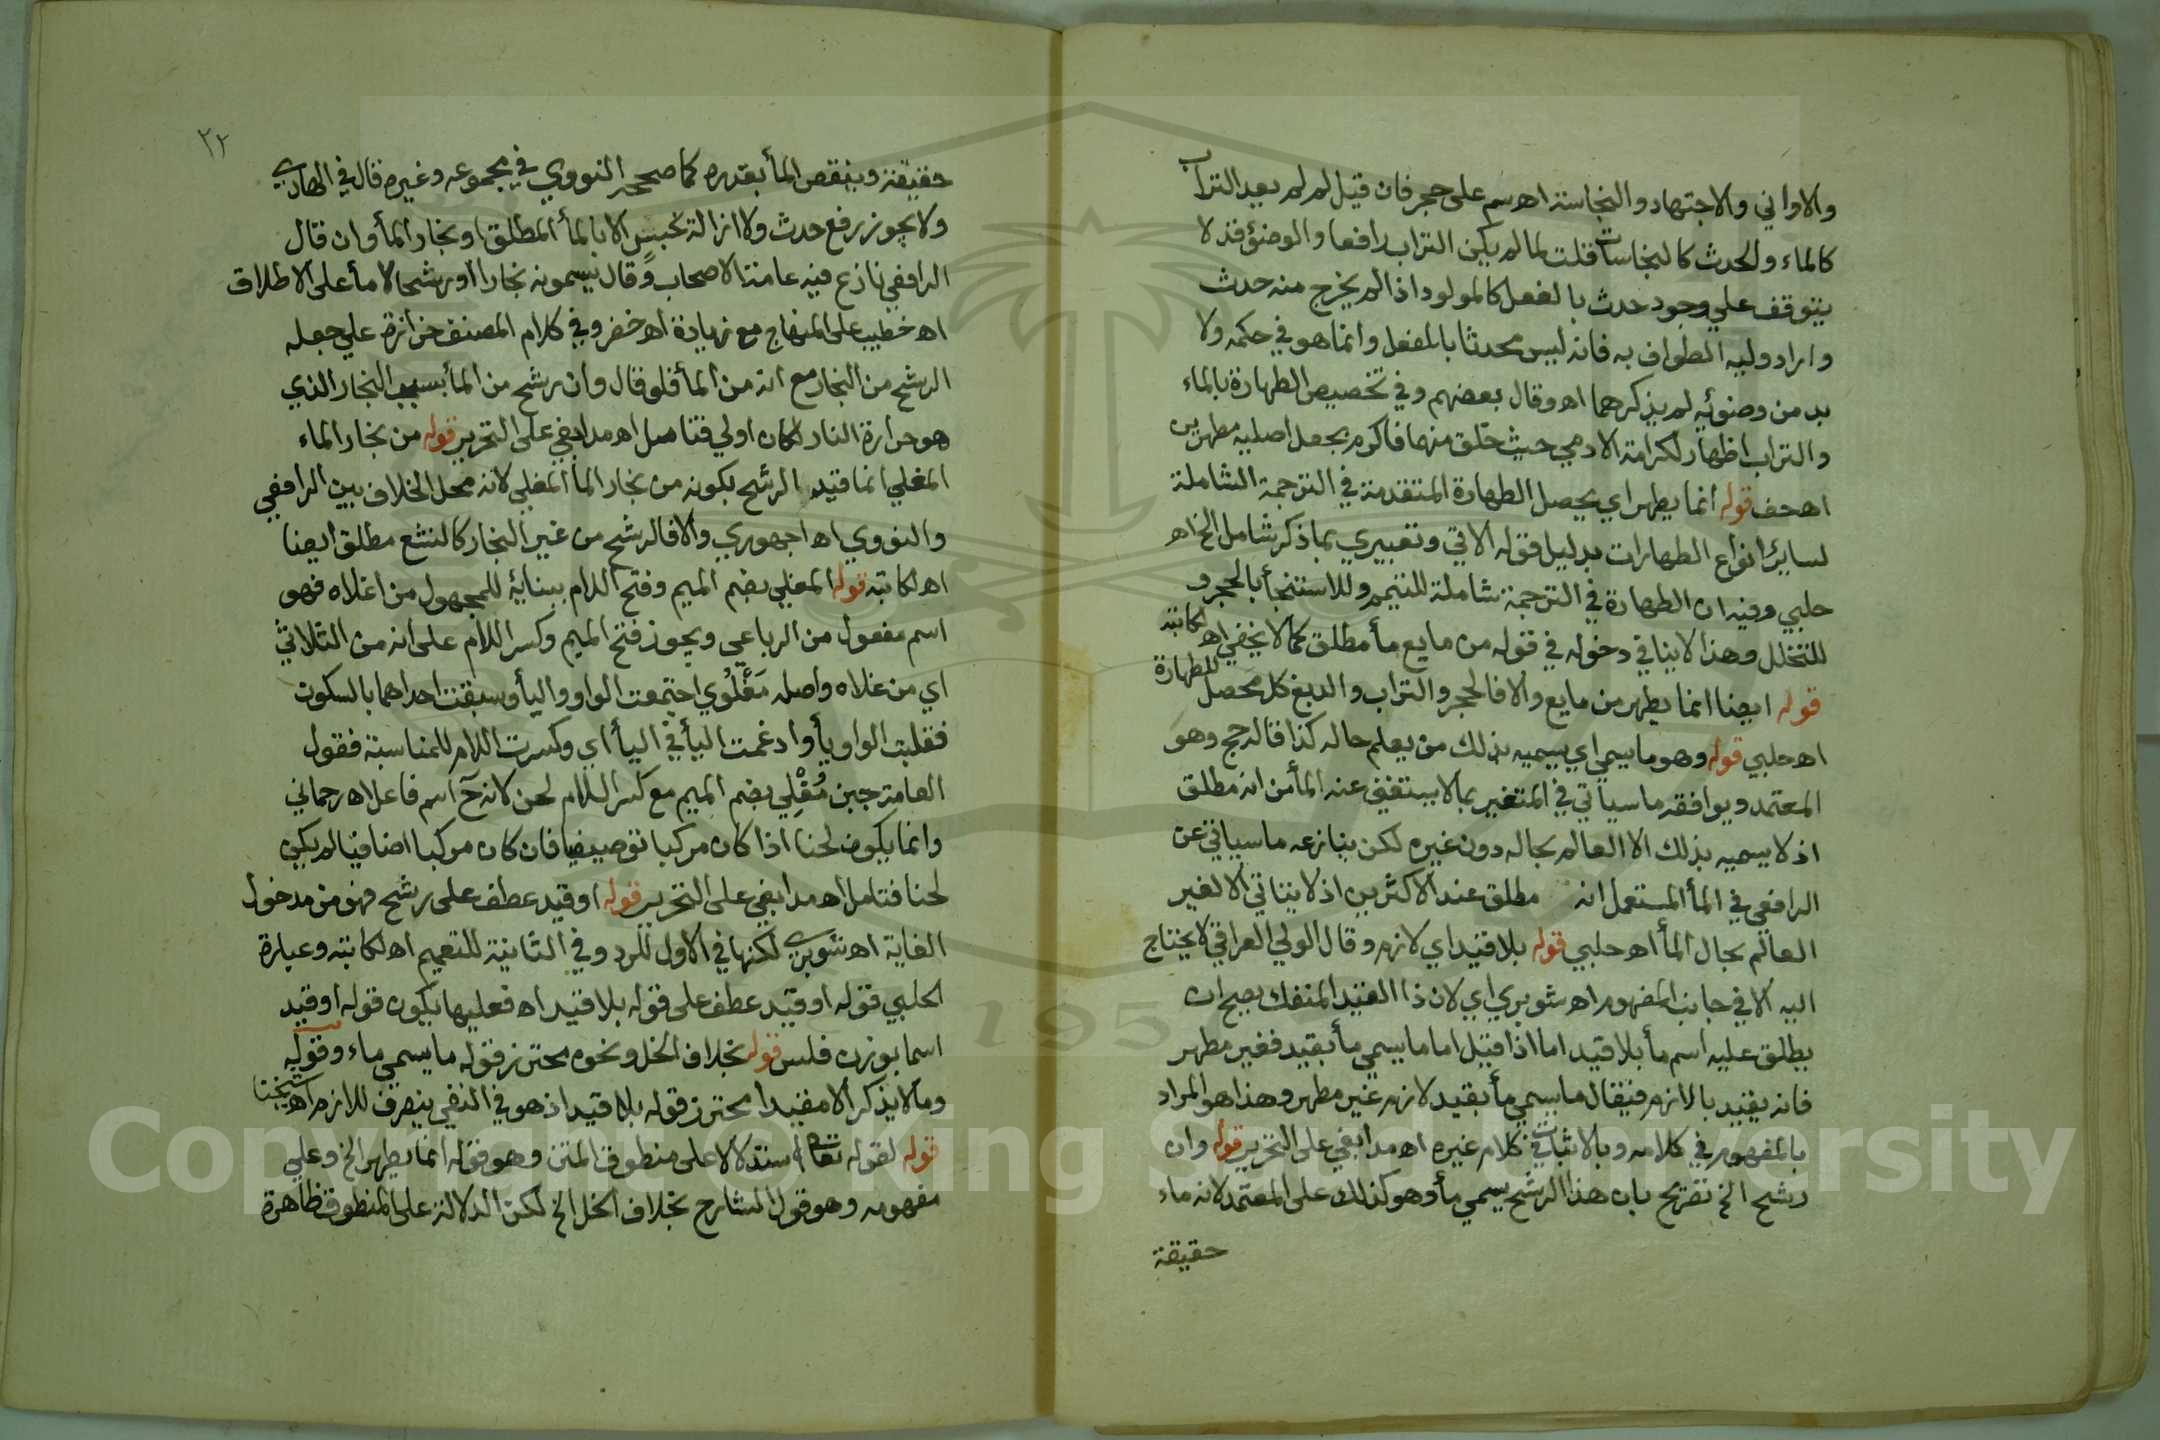 والاواني والاجتهاد والنجاسة اه سم على حجر فان قيل لم لم يعد التراب
كالماء والحدث كالنجاسات قلت لما لم يكن التراب رافعا والوضؤ قد لا
يتوقف علي وجود حدث بالفعل كالمولود اذا لم يخرج منه حدث
واراد وليه الطواف به فانه ليس محدثا بالفعل وانما هو في حكمه ولا
بد من وضوئه لم يذكرهما اه وقال بعضهم وفي تخصيص الطهارة بالماء
والتراب اظهار لكرامة الادمي حيث خلق منهما فاكرم بجعل اصليه مطهرين
اه حف قوله انما يطهر اي يحصل الطهارة المتقدمة في الترجمة الشاملة
لساير انواع الطهارات بدليل قوله الاتي وتعبيري بما ذكر شامل الخ اه
حلبي وفيه ان الطهارة في الترجمة شاملة للتيمم وللاستنجأ بالحجر و
للتخلل وهذا لا ينافي دخوله في قوله من مايع مأ مطلق كما لا يخفي اه لكاتبه
قوله ايضا انما يطهر من مايع والا فالحجر والتراب والدبغ كل محصل للطهارة
اه حلبي قوله وهو ما يسمي اي يسميه بذلك من يعلم حاله كذا قاله حج وهو
المعتمد ويوافقه ما سيأتي في المتغير بما لا يستغني عنه المأ من انه مطلق
اذ لا يسميه بذلك الا العالم بحاله دون غيره لكن ينازعه ما سياتي عن
الرافعي في المأ المستعمل انه مطلق عند الاكثرين اذ لا يتاتي الا لغير
العالم بحال المأ اه حلبي قوله بلا قيد اي لازم وقال الولي العراقي لا يحتاج
اليه الا في جانب المفهوم اه شوبري اي لان ذا القيد المنفك يصح ان
يطلق عليه اسم مأ بلا قيد اما اذا قيل اما ما يسمي مأ بقيد فغير مطهر
فانه يقيد بالازم فيقال ما يسمي مأ بقيد لازم غير مطهر وهذا هو المراد
بالمفهوم في كلامه وبالاثبات في كلام غيره اه مدابغي على التحرير قوله وان
رشح الخ تصريح بان هذا الرشح يسمي مأ وهو كذلك على المعتمد لانه ماء
حقيقة
٢٢
حقيقة وينقص المأ بقدره كما صححه النووي في مجموعه وغيره قال في الهادي
ولا يجوز رفع حدث ولا ازالة نجس الا بالمأ المطلق او بخار المأ وان قال
الرافعي نازع فيه عامة الاصحاب وقال يسمونه بخارا او رشحا لا مأ على الاطلاق
اه خطيب على المنهاج مع زيادة اه خضر وفي كلام المصنف حزازة علي جعله
الرشح من البخار مع انه من المأ فلو قال وان رشح من المأ بسبب البخار الذي
هو حرارة النار لكان اولي فتامل اه مدابغي على التحرير قوله من بخار الماء
المغلي انما قيد الرشح بكونه من بخار المأ المغلي لانه محل الخلاف بين الرافعي
والنووي اه اجهوري والا فالرشح من غير البخار كالنشع مطلق ايضا
اه لكاتبه قوله المغلي بضم الميم وفتح اللام ببنائه للمجهول من اغلاه فهو
اسم مفعول من الرباعي ويجوز فتح الميم وكسر اللام على انه من الثلاثي
اي من غلاه واصله مَغْلُوي اجتمعت الواو واليأ وسبقت احداهما بالسكون
فقلبت الواو يأ وادغمت اليأ في اليأ اي وكسرت اللام للمناسبة فقول
العامة جبن مُقْلِي بضم الميم مع كسر اللام لحن لانه ح اسم فاعل اه رحماني
وانما يكون لحنا اذا كان مركبا توصيفيا فان كان مركبا اضافيا لم يكن
لحنا فتامل اه مدابغي على التحرير قوله او قيد عطف على رشح فهو من مدخول
الغاية اه شوبري لكنها في الاول للرد وفي الثانية للتعميم اه لكاتبه وعبارة
الحلبي قوله او قيد عطف على قوله بلا قيد اه فعليها يكون قوله او قيد
اسما بوزن فلس قوله بخلاف الخل ونحوه محترز قوله ما يسمي ماء وقوله
وما لا يذكر الا مقيدا محترز قوله بلا قيد اذ هو في النفي ينصرف للازم اه شيخنا
قوله لقوله تعالى استدلالا على منطوق المتن وهو قوله انما يطهر الخ وعلي
مفهومه وهو قول الشارح بخلاف الخل الخ لكن الدلالة على المنطوق ظاهرة
Copyright © King Saud University
195